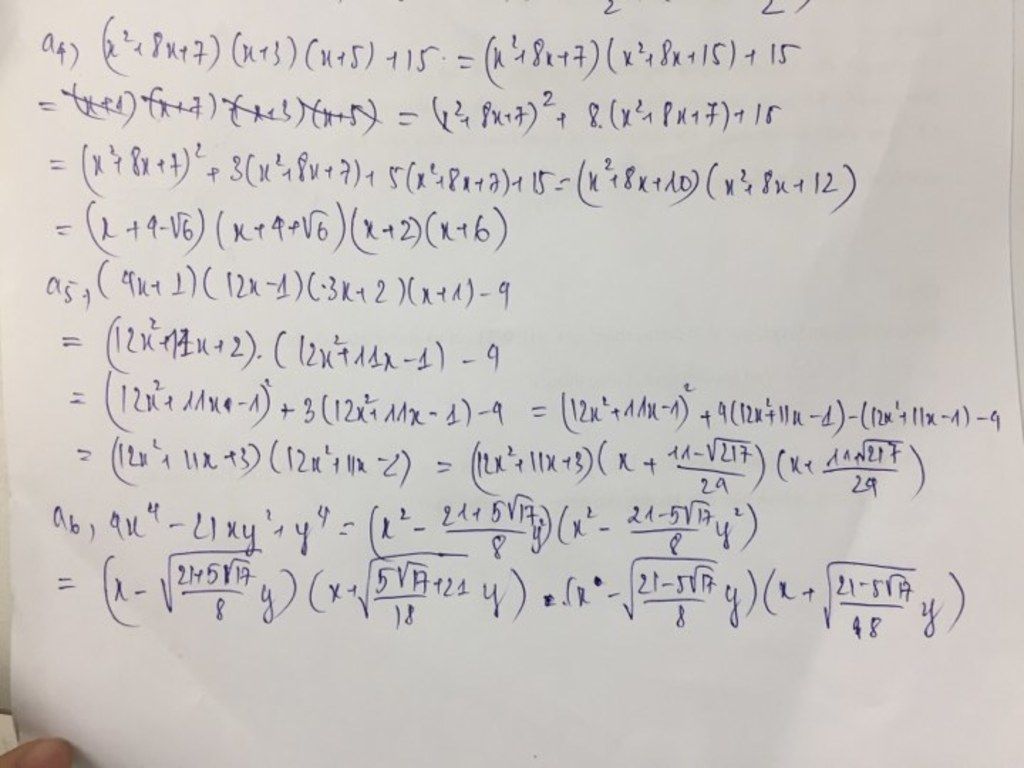 a4) (x²+8x+7)(x+3)(x+5)+15 = (x²+8x+7)(x²+8x+15)+15
= (x+1)(x+7)(x+3)(x+5) = (x²+8x+7)²+ 8.(x²+8x+7)+15
= (x²+8x+7)²+3(x²+8x+7)+5(x²+8x+7)+15=(x²+8x+10)(x²+8x+12)
= (x+4-√6)(x+4+√6)(x+2)(x+6)
a5, (4x+1)(12x-1)(3x+2)(x+1)-4
= (12x²+11x+2).(12x²+11x-1)-4
= (12x²+11x-1)²+3(12x²+11x-1)-4 = (12x²+11x-1)²+4(12x²+11x-1)-(12x²+11x-1)-4
= (12x²+11x+3)(12x²+11x-2) = (12x²+11x+3)(x+(11-√217)/24)(x+(11+√217)/24)
a6, 4x⁴-21xy²+y⁴=(x²-(21+5√17)/8 y²)(x²-(21-5√17)/8 y²)
= (x-√((21+5√17)/8) y)(x+√((5√17+21)/18) y).(x-√((21-5√17)/8) y)(x+√((21-5√17)/18) y)